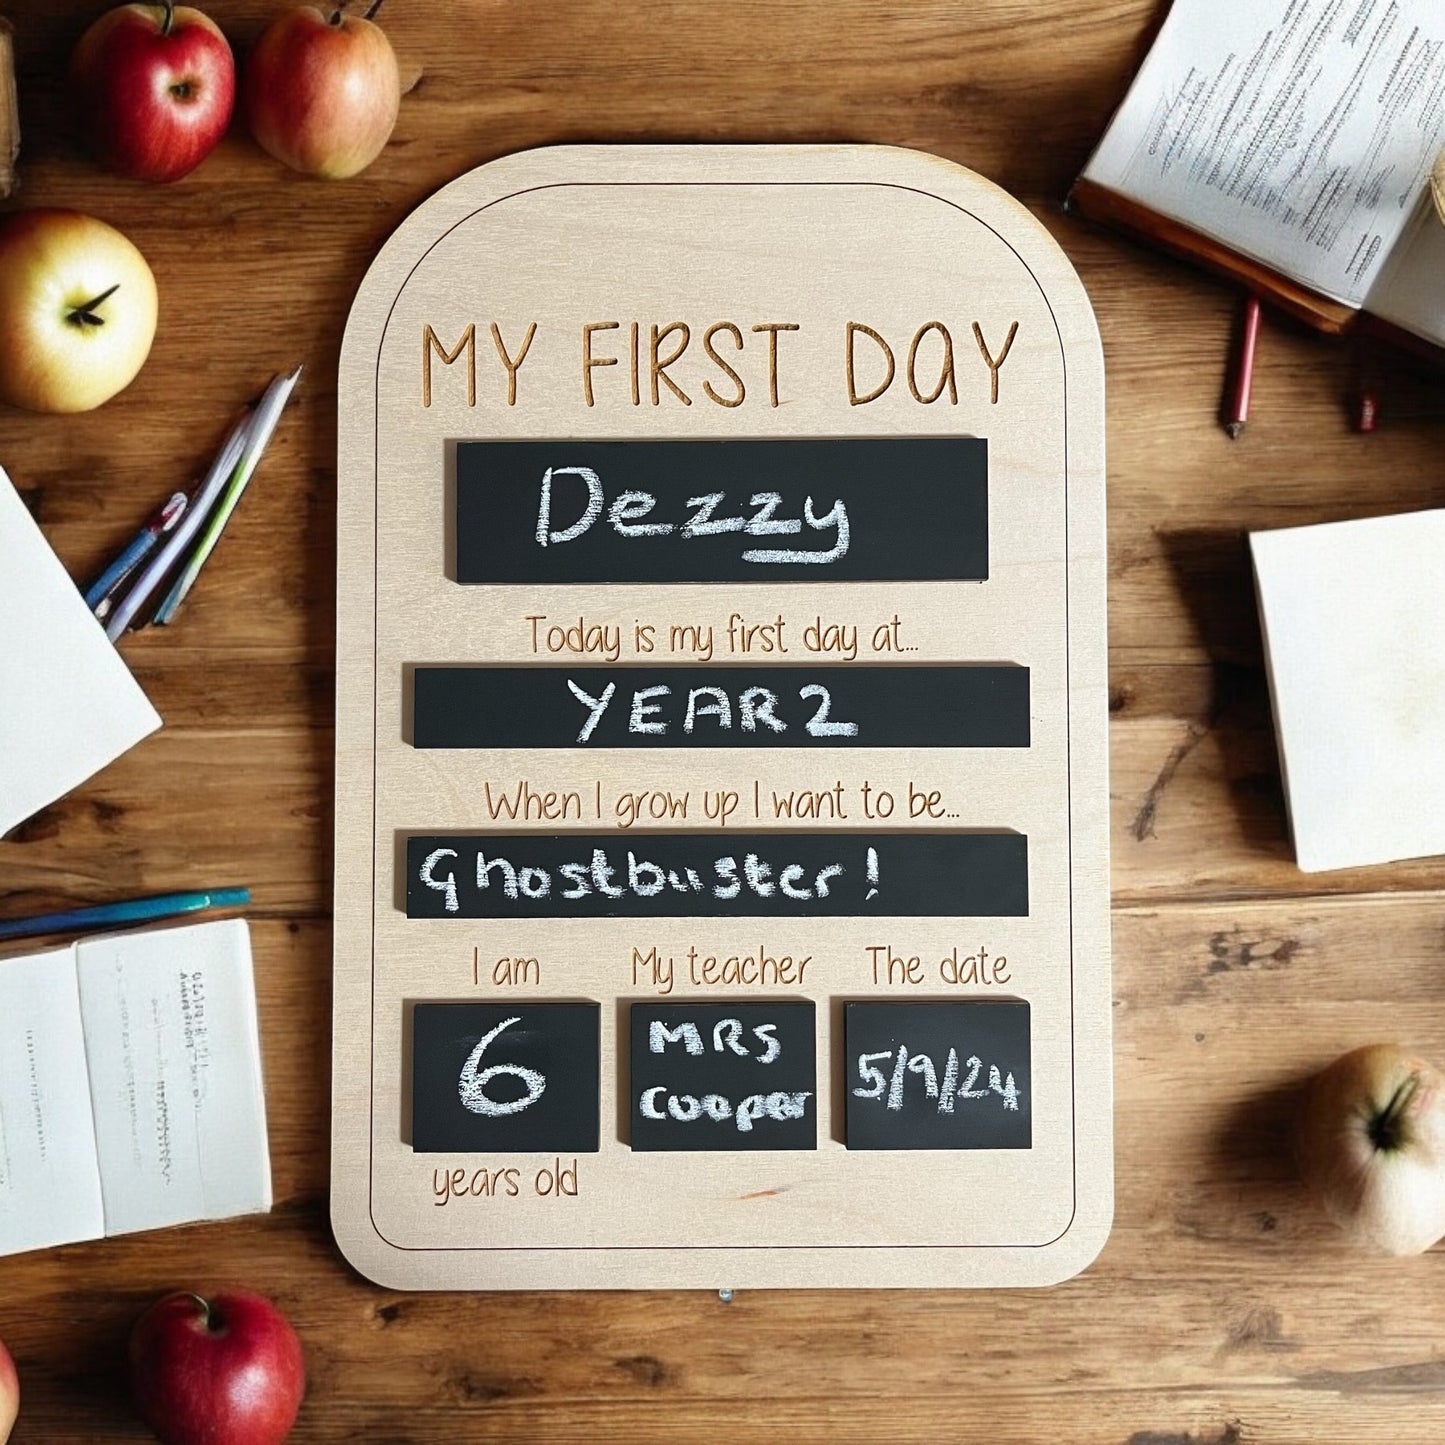 MY FIRST DAY
Dezzy
Today is my first day at...
YEAR 2
When I grow up I want to be...
Ghostbuster!
I am
My teacher
The date
6
MRS
Cooper
5/9/24
years old